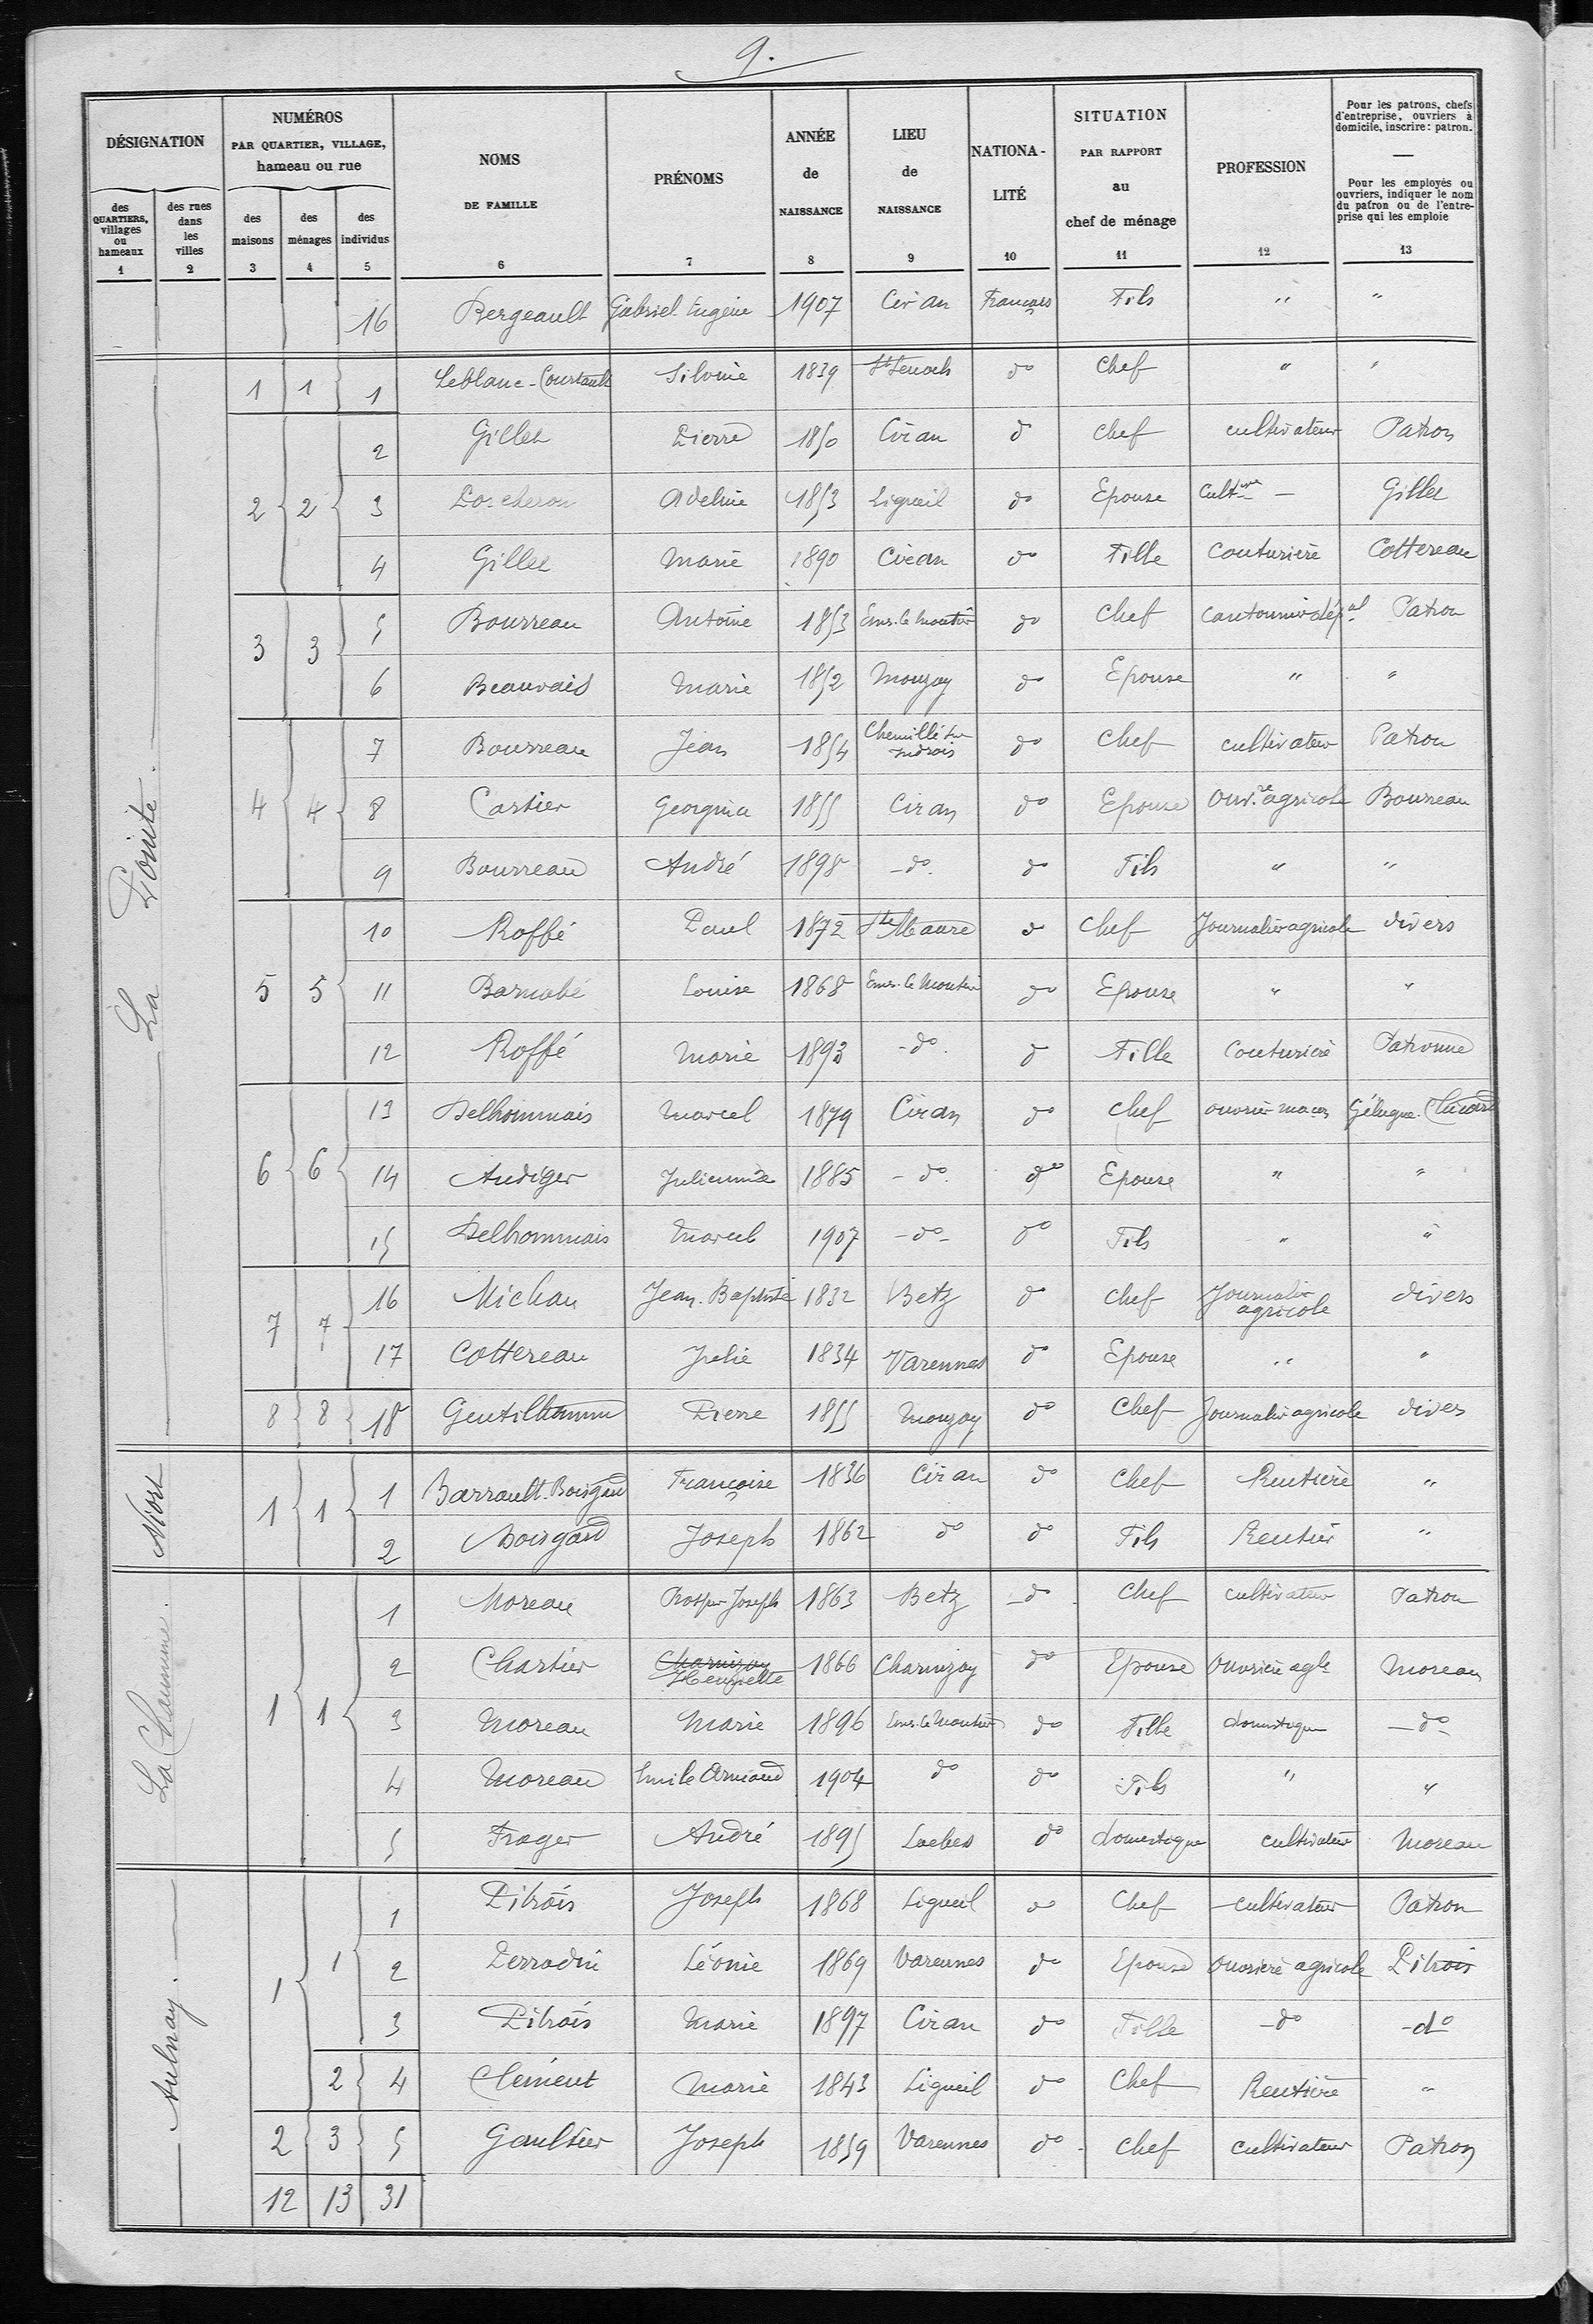 9.
DÉSIGNATION
des QUARTIERS, villages ou hameaux
1
des rues dans les villes
2
NUMÉROS
PAR QUARTIER, VILLAGE,
hameau ou rue
des maisons
3
des ménages
4
des individus
5
NOMS
DE FAMILLE
6
PRÉNOMS
7
ANNÉE
de
NAISSANCE
8
LIEU
de
NAISSANCE
9
NATIONA-
LITÉ
10
SITUATION
PAR RAPPORT
au
chef de ménage
11
PROFESSION
12
Pour les patrons, chefs
d'entreprise, ouvriers à
domicile, inscrire: patron.
—
Pour les employés ou
ouvriers, indiquer le nom
du patron ou de l'entre-
prise qui les emploie
13
16 Bergeault Gabriel Eugène 1907 Ciran Français Fils " "
La Pointe.
1 1 1 Leblanc-Courtault Silvine 1839 St Senoch do Chef " "
2 Gilles Pierre 1850 Ciran do chef cultivateur Patron
2 2 3 Porcheron Adeline 1853 Ligueil do Epouse Gilles
4 Gilles Marie 1890 Ciran do Fille Couturière Cottereau
3 3 5 Bourreau Antoine 1853 Esves-le-Moutier do Chef cantonnier dépal Patron
6 Beauvais Marie 1852 Mouzay do Epouse " "
7 Bourreau Jean 1854 Chemillé sur Indrois do Chef cultivateur Patron
4 4 8 Cartier Georgina 1855 Ciran do Epouse Ouvre agricole Bourreau
9 Bourreau André 1898 -do- do Fils " "
10 Roffé Paul 1872 Ste Maure do Chef Journalier agricole divers
5 5 11 Barnabé Louise 1868 Esves-le-Moutier do Epouse " "
12 Roffé Marie 1893 -do- do Fille Couturière Patronne
13 Delhommais Marcel 1879 Ciran do Chef ouvrier maçon
6 6 14 Audiger Julienne 1885 -do- do Epouse " "
15 Delhommais Marcel 1907 -do- do Fils " "
7 7 16 Michau Jean-Baptiste 1832 Betz do Chef Journalier agricole divers
17 Cottereau Julie 1834 Varennes do Epouse " "
8 8 18 Gentilhomme Pierre 1855 Mouzay do Chef Journalier agricole divers
Niort
1 1 1 Barrault-Boisgard Françoise 1836 Ciran do Chef Rentière "
2 Boisgard Joseph 1862 do do Fils Rentier "
La Chaumine.
1 Moreau Prosper Joseph 1863 Betz -do- Chef cultivateur Patron
2 Chartier Charnizay Henriette 1866 Charnizay do Epouse Ouvrière agle Moreau
1 1 3 Moreau Marie 1896 Esves-le-Moutier do Fille domestique -do-
4 Moreau Emile Armand 1904 do do Fils " "
5 Frager André 1895 Loches do domestique cultivateur Moreau
Aulnay.
1 1 1 Pitrois Joseph 1868 Ligueil do Chef cultivateur Patron
2 Perrodin Léonie 1869 Varennes do Epouse Ouvrière agricole Pitrois
3 Pitrois Marie 1897 Ciran do Fille -do -do
2 4 Clément Marie 1843 Ligueil do Chef Rentière "
2 3 5 Gaultier Joseph 1859 Varennes do Chef cultivateur Patron
12 13 31